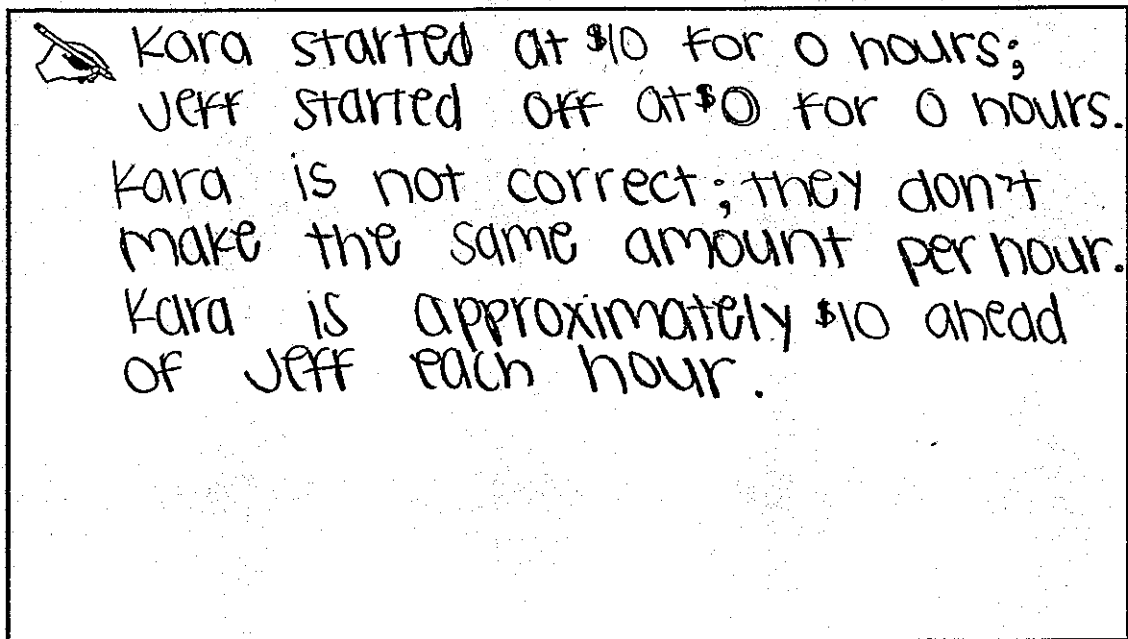 Kara started at $10 for 0 hours;
Jeff started off at $0 for 0 hours.
Kara is not correct; they don't
make the same amount per hour.
Kara is approximately $10 ahead
of Jeff each hour.